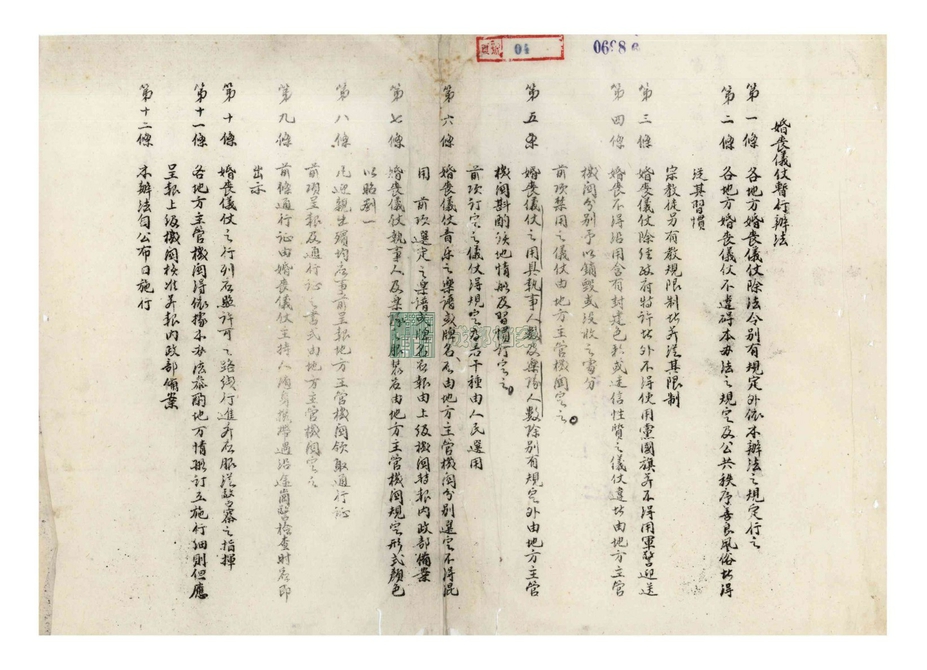 04
0698
婚喪儀仗暫行辦法
第一條 各地方婚喪儀仗除法令別有規定外依本辦法之規定行之
第二條 各地方婚喪儀仗不違碍本办法之規定及公共秩序善良風俗者得
從其習慣
宗教徒另有教規限制者并從其限制
第三條 婚喪儀仗除經政府特許者外不得使用黨國旗并不得用軍警迎送
第四條 婚喪不得沿用含有封建色彩或迷信性質之儀仗違者由地方主管
機関分別予以銷毀或沒收之處分
前項禁用之儀仗由地方主管機関定之
第五條 婚喪儀仗之用具執事人數及樂隊人數除別有規定外由地方主管
機関斟酌該地情形及習慣訂定之
前項訂定之儀仗得規定為若干種由人民選用
第六條 婚喪儀仗音乐之樂譜或牌名应由地方主管機関分別選定不得混
用 前項選定之樂譜或牌名应報由上級機関轉報內政部備案
第七條 婚喪儀仗執事人及樂隊之服裝应由地方主管機関規定形式顏色
以昭劃一
第八條 凡迎親出殯均应事前呈報地方主管機関領取通行証
前項呈報及通行証之書式由地方主管機関定之
第九條 前條通行証由婚喪儀仗主持人随身携带遇沿途崗警檢查時应即
出示
第十條 婚喪儀仗之行列应照許可之路线行進并应服從警察之指揮
第十一條 各地方主管機関得依據本办法参酌地方情形訂立施行細則但應
呈報上級機関核准并報內政部備案
第十二條 本辦法自公布日施行